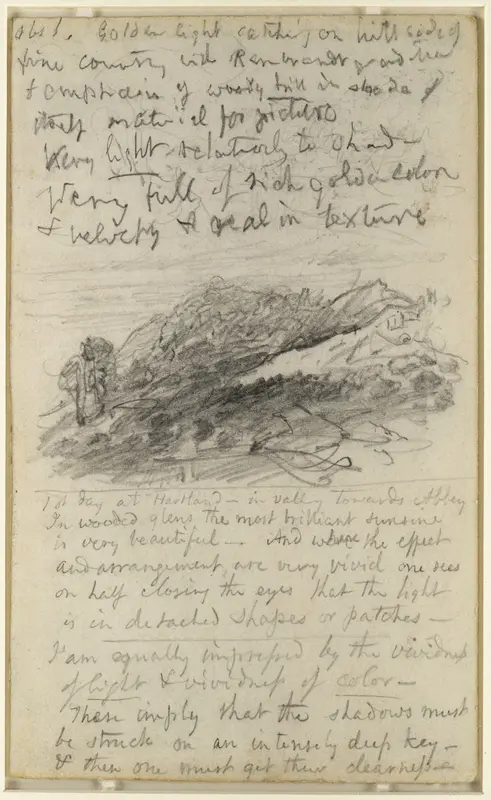 Golden light catching on hill side of
fine country with Rembrandt
of woody hill in shade &
material for picture
Very light relatively to shade
Very full of rich golden color
& velvety & real in texture
1st day at Hartland — in valley towards Abbey
In wooded glens the most brilliant sunsine
is very beautiful — And where the effect
and arrangement are very vivid one sees
on half closing the eyes that the light
is in detached shapes or patches —
I am equally impressed by the vividness
of light & vividness of color —
These imply that the shadows must
be struck on an intensely deep key —
& then one must get their clearness —